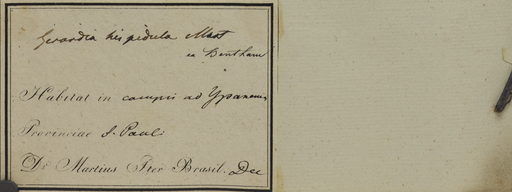 Gerardia hispidula Mart
ex Bentham
Habitat in campis ad Ypanema
Provinciae S. Pauli
Dr Martius Iter Brasil. Dec